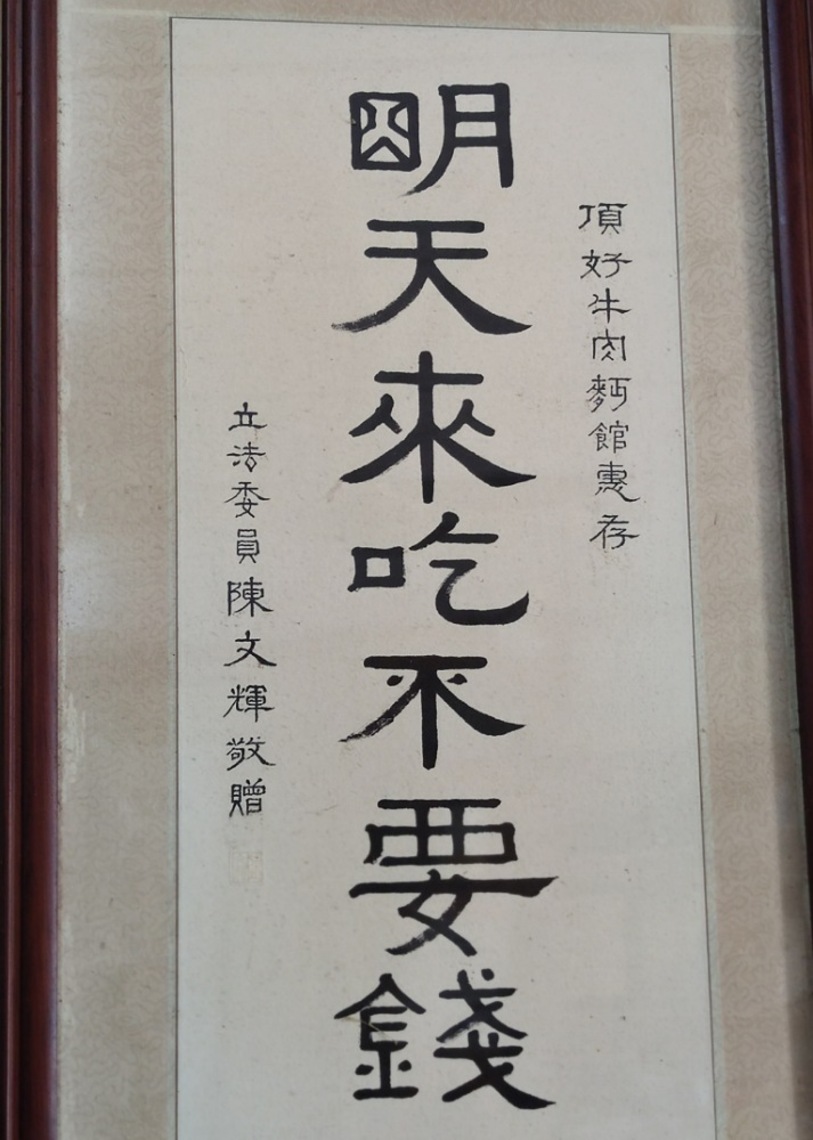 頂好牛肉麪館惠存
明天來吃不要錢
立法委員陳文輝敬贈